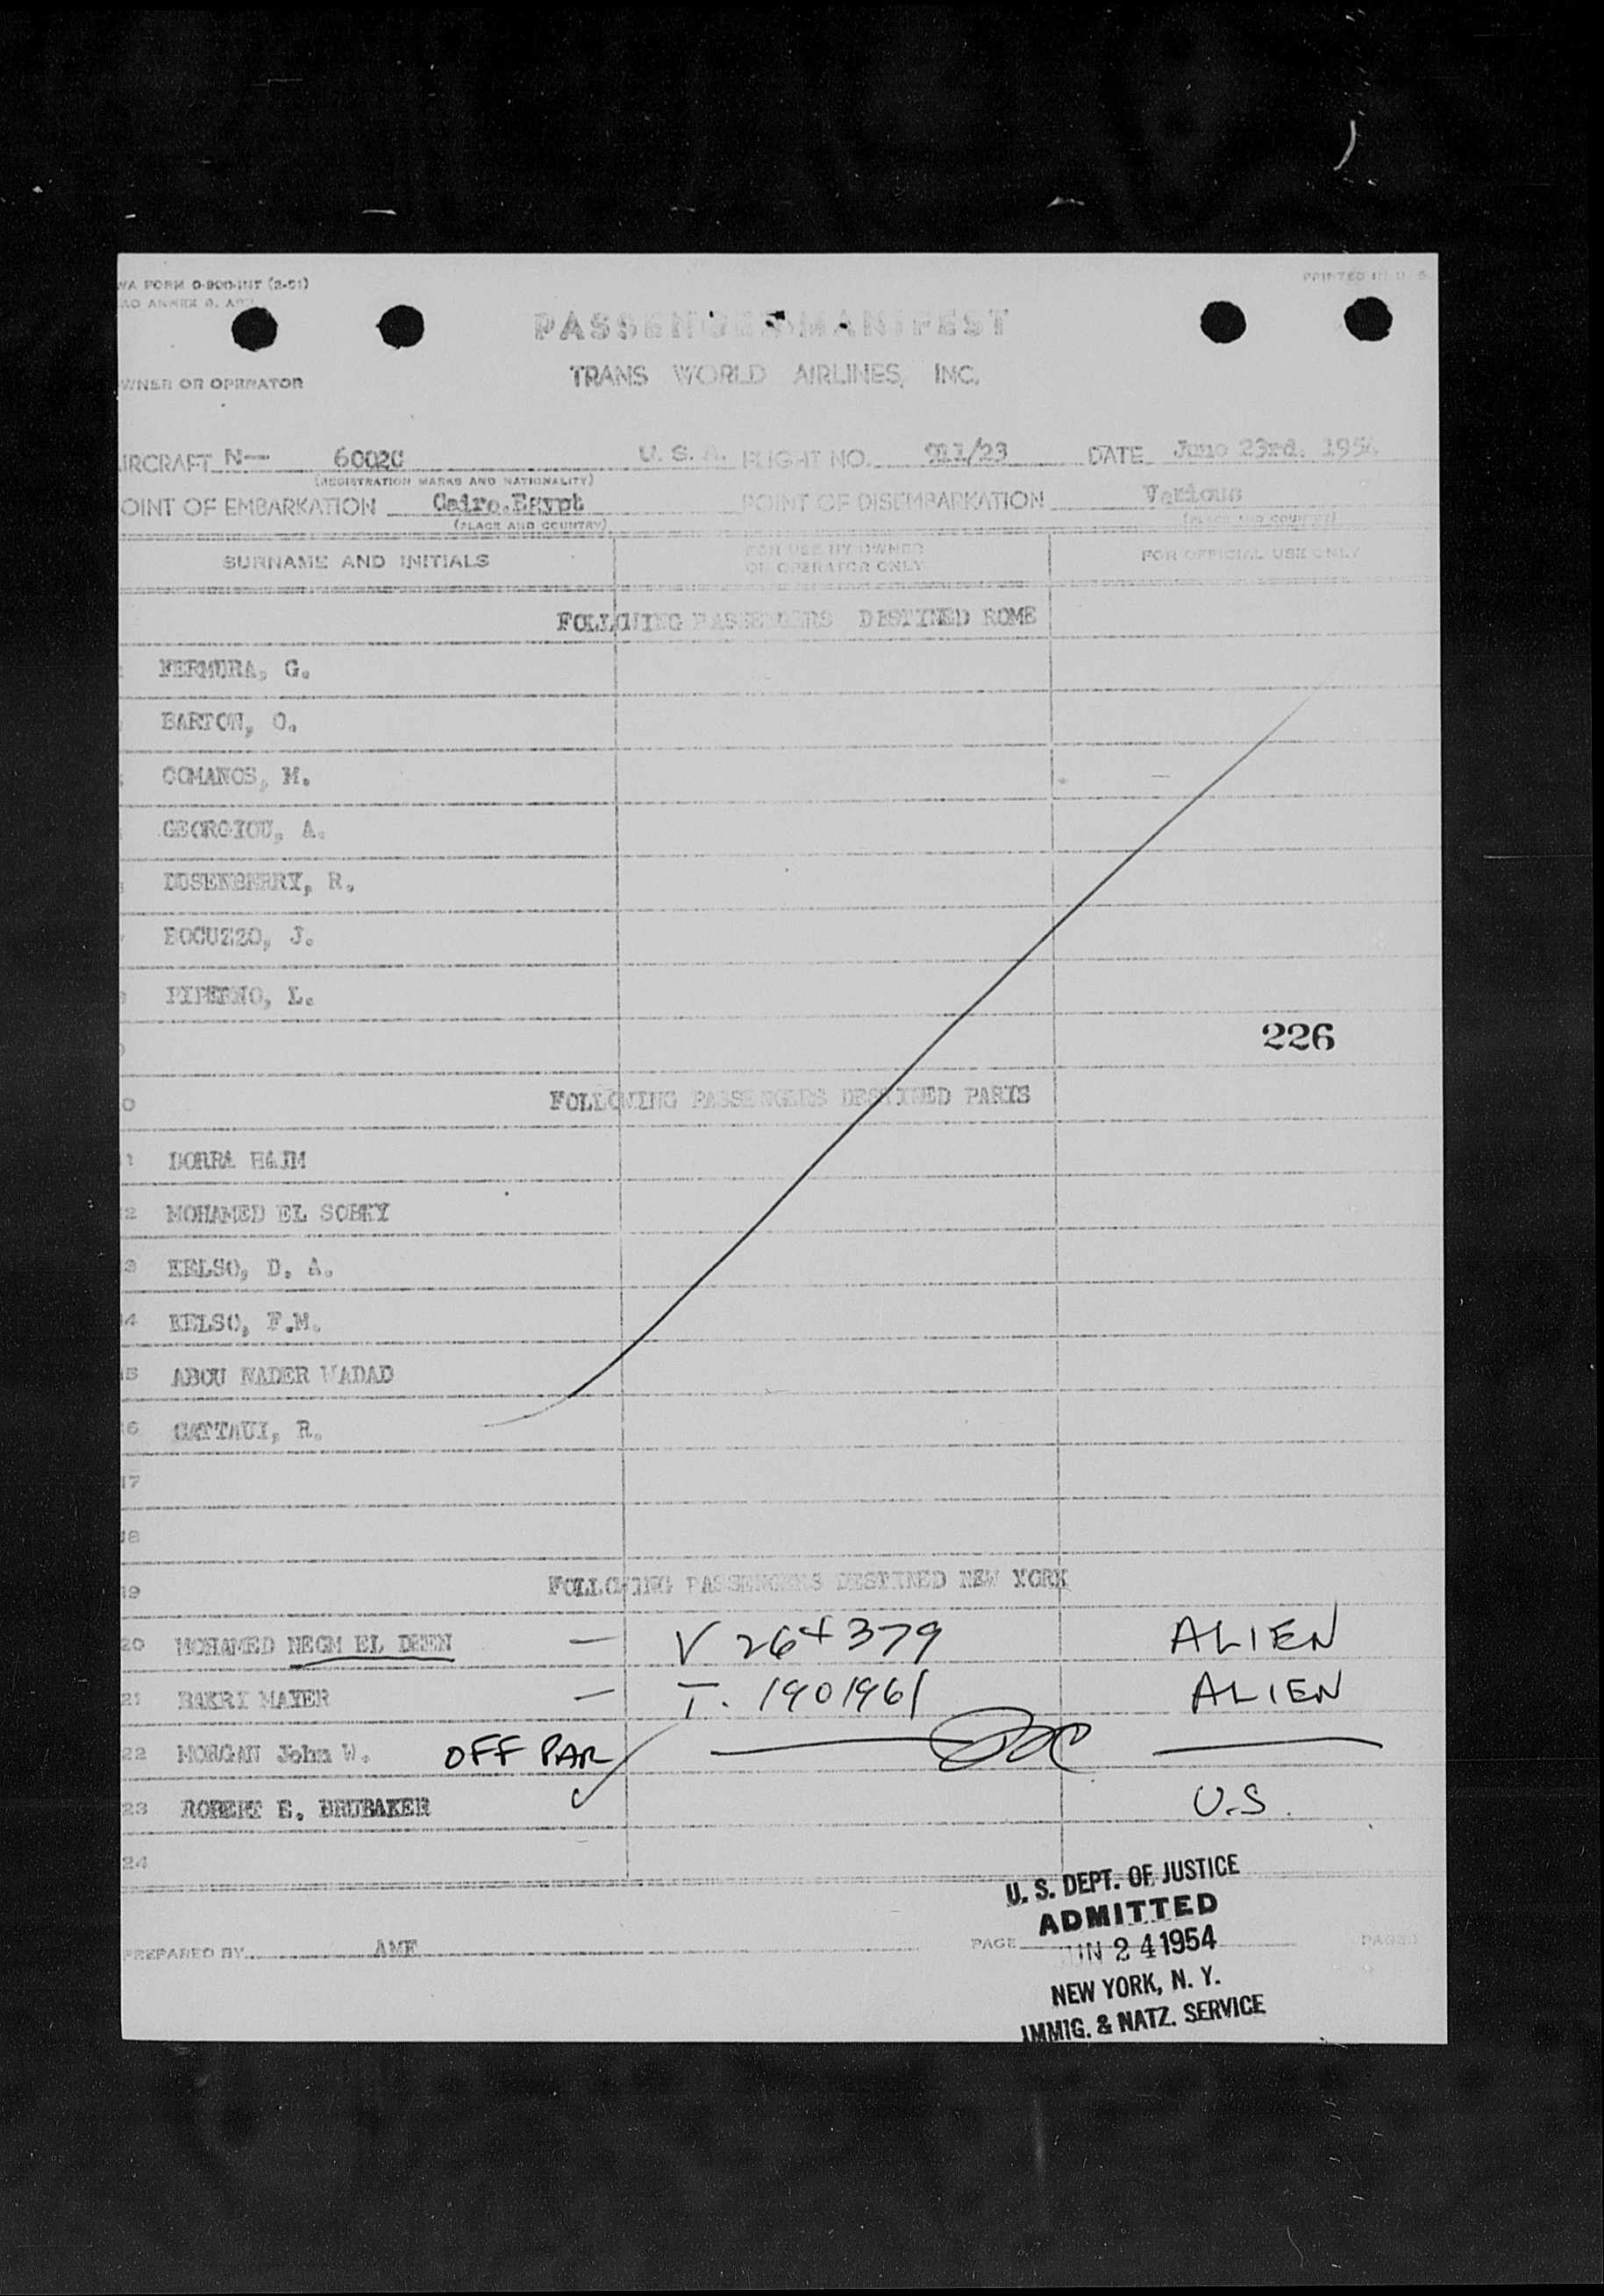 WA FORM 0-900-INT (2-51)
PRINTED IN U. S.
AO ANNEX 9,
PASSENGER MANIFEST
WNER OR OPERATOR
TRANS WORLD AIRLINES, INC.
IRCRAFT N-- 6002C U. S. A. FLIGHT NO. 911/23 DATE June 23rd. 1954
(REGISTRATION MARKS AND NATIONALITY)
OINT OF EMBARKATION Cairo.Egypt POINT OF DISEMBARKATION Various
(PLACE AND COUNTRY) (PLACE AND COUNTRY)
SURNAME AND INITIALS FOR USE BY OWNER OR OPERATOR ONLY FOR OFFICIAL USE ONLY
FOLLOWING PASSENGERS DESTINED ROME
FERMURA, G.
BARTON, O.
COMANOS, M.
GEORGIOU, A.
DUSENBERRY, R.
BOCUZZO, J.
PIPERNO, L.
226
0 FOLLOWING PASSENGERS DESTINED PARIS
1 DORRA HAIM
2 MOHAMED EL SOBKY
3 KELSO, D. A.
14 KELSO, F.M.
15 ABOU NADER WADAD
16 CATTAUI, R.
17
18
19 FOLLOWING PASSENGERS DESTINED NEW YORK
20 MOHAMED NEGM EL DEEN — V 264379 ALIEN
21 BAKRI MAYER — I. 1901961 ALIEN
22 MORGAN John W. OFF PAR
23 ROBERT E. BRUBAKER U.S.
24
U. S. DEPT. OF JUSTICE
ADMITTED
PREPARED BY AMF PAGE PAGES
JUN 24 1954
NEW YORK, N. Y.
IMMIG. & NATZ. SERVICE